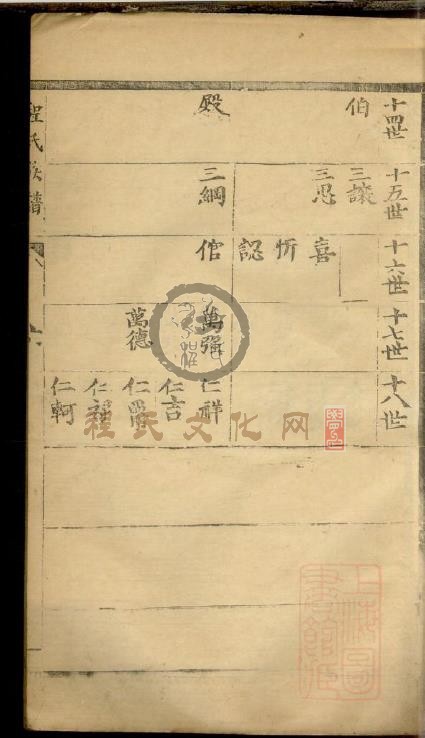 十四世
伯
殿
十五世
三讓
三思
三綱
十六世
喜
忻
認
倌
十七世
萬強
萬德
十八世
仁祥
仁吉
仁爵
仁軻
程氏族譜
程氏文化网
上海圖書館藏